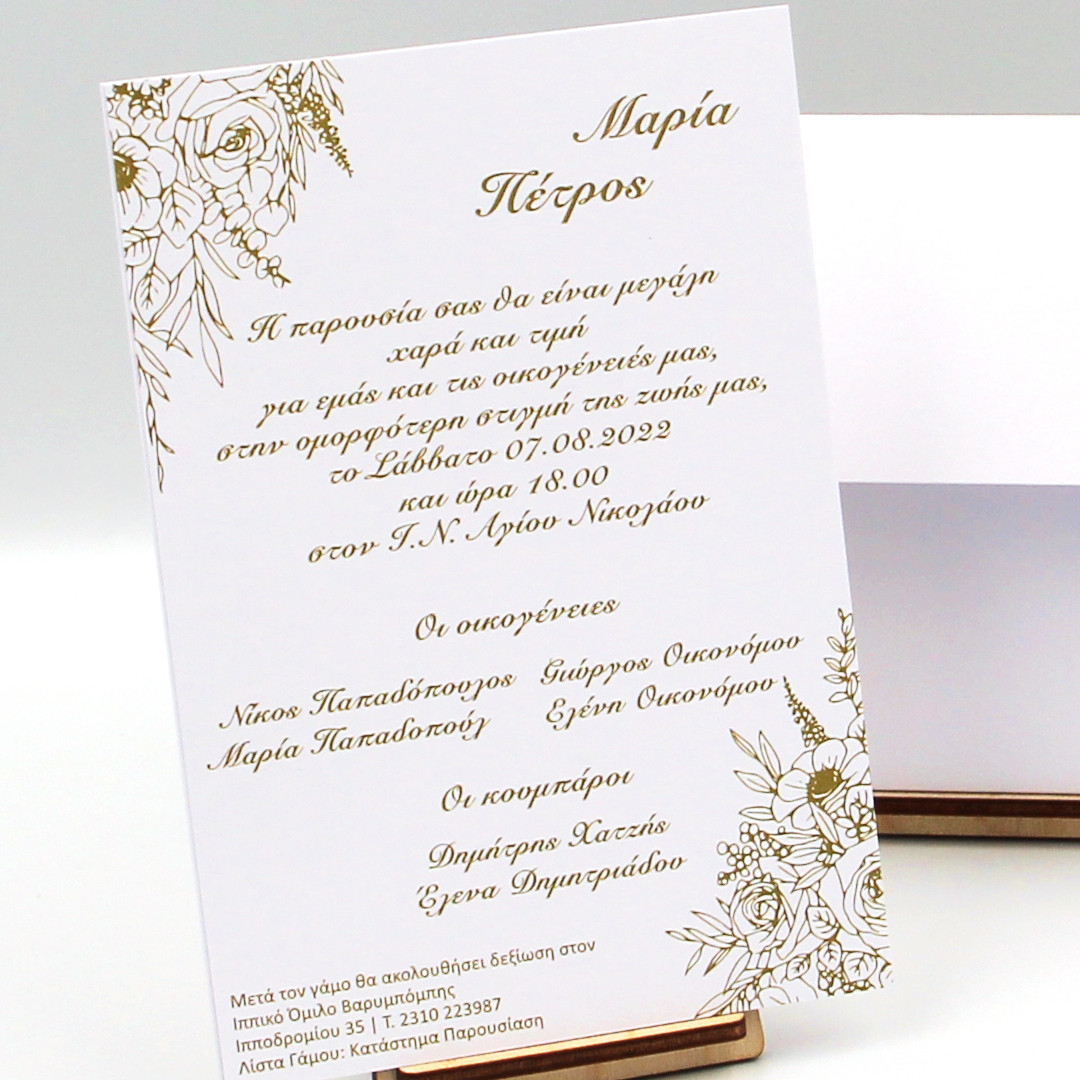 Μαρία
Πέτρος
Η παρουσία σας θα είναι μεγάλη
χαρά και τιμή
για εμάς και τις οικογένειές μας,
στην ομορφότερη στιγμή της ζωής μας,
το Σάββατο 07.08.2022
και ώρα 18.00
στον Ι.Ν. Αγίου Νικολάου
Οι οικογένειες
Νίκος Παπαδόπουλος Γιώργος Οικονόμου
Μαρία Παπαδοπούλ Ελένη Οικονόμου
Οι κουμπάροι
Δημήτρης Χατζής
Έλενα Δημητριάδου
Μετά τον γάμο θα ακολουθήσει δεξίωση στον
Ιππικό Όμιλο Βαρυμπόμπης
Ιπποδρομίου 35 | Τ. 2310 223987
Λίστα Γάμου: Κατάστημα Παρουσίαση